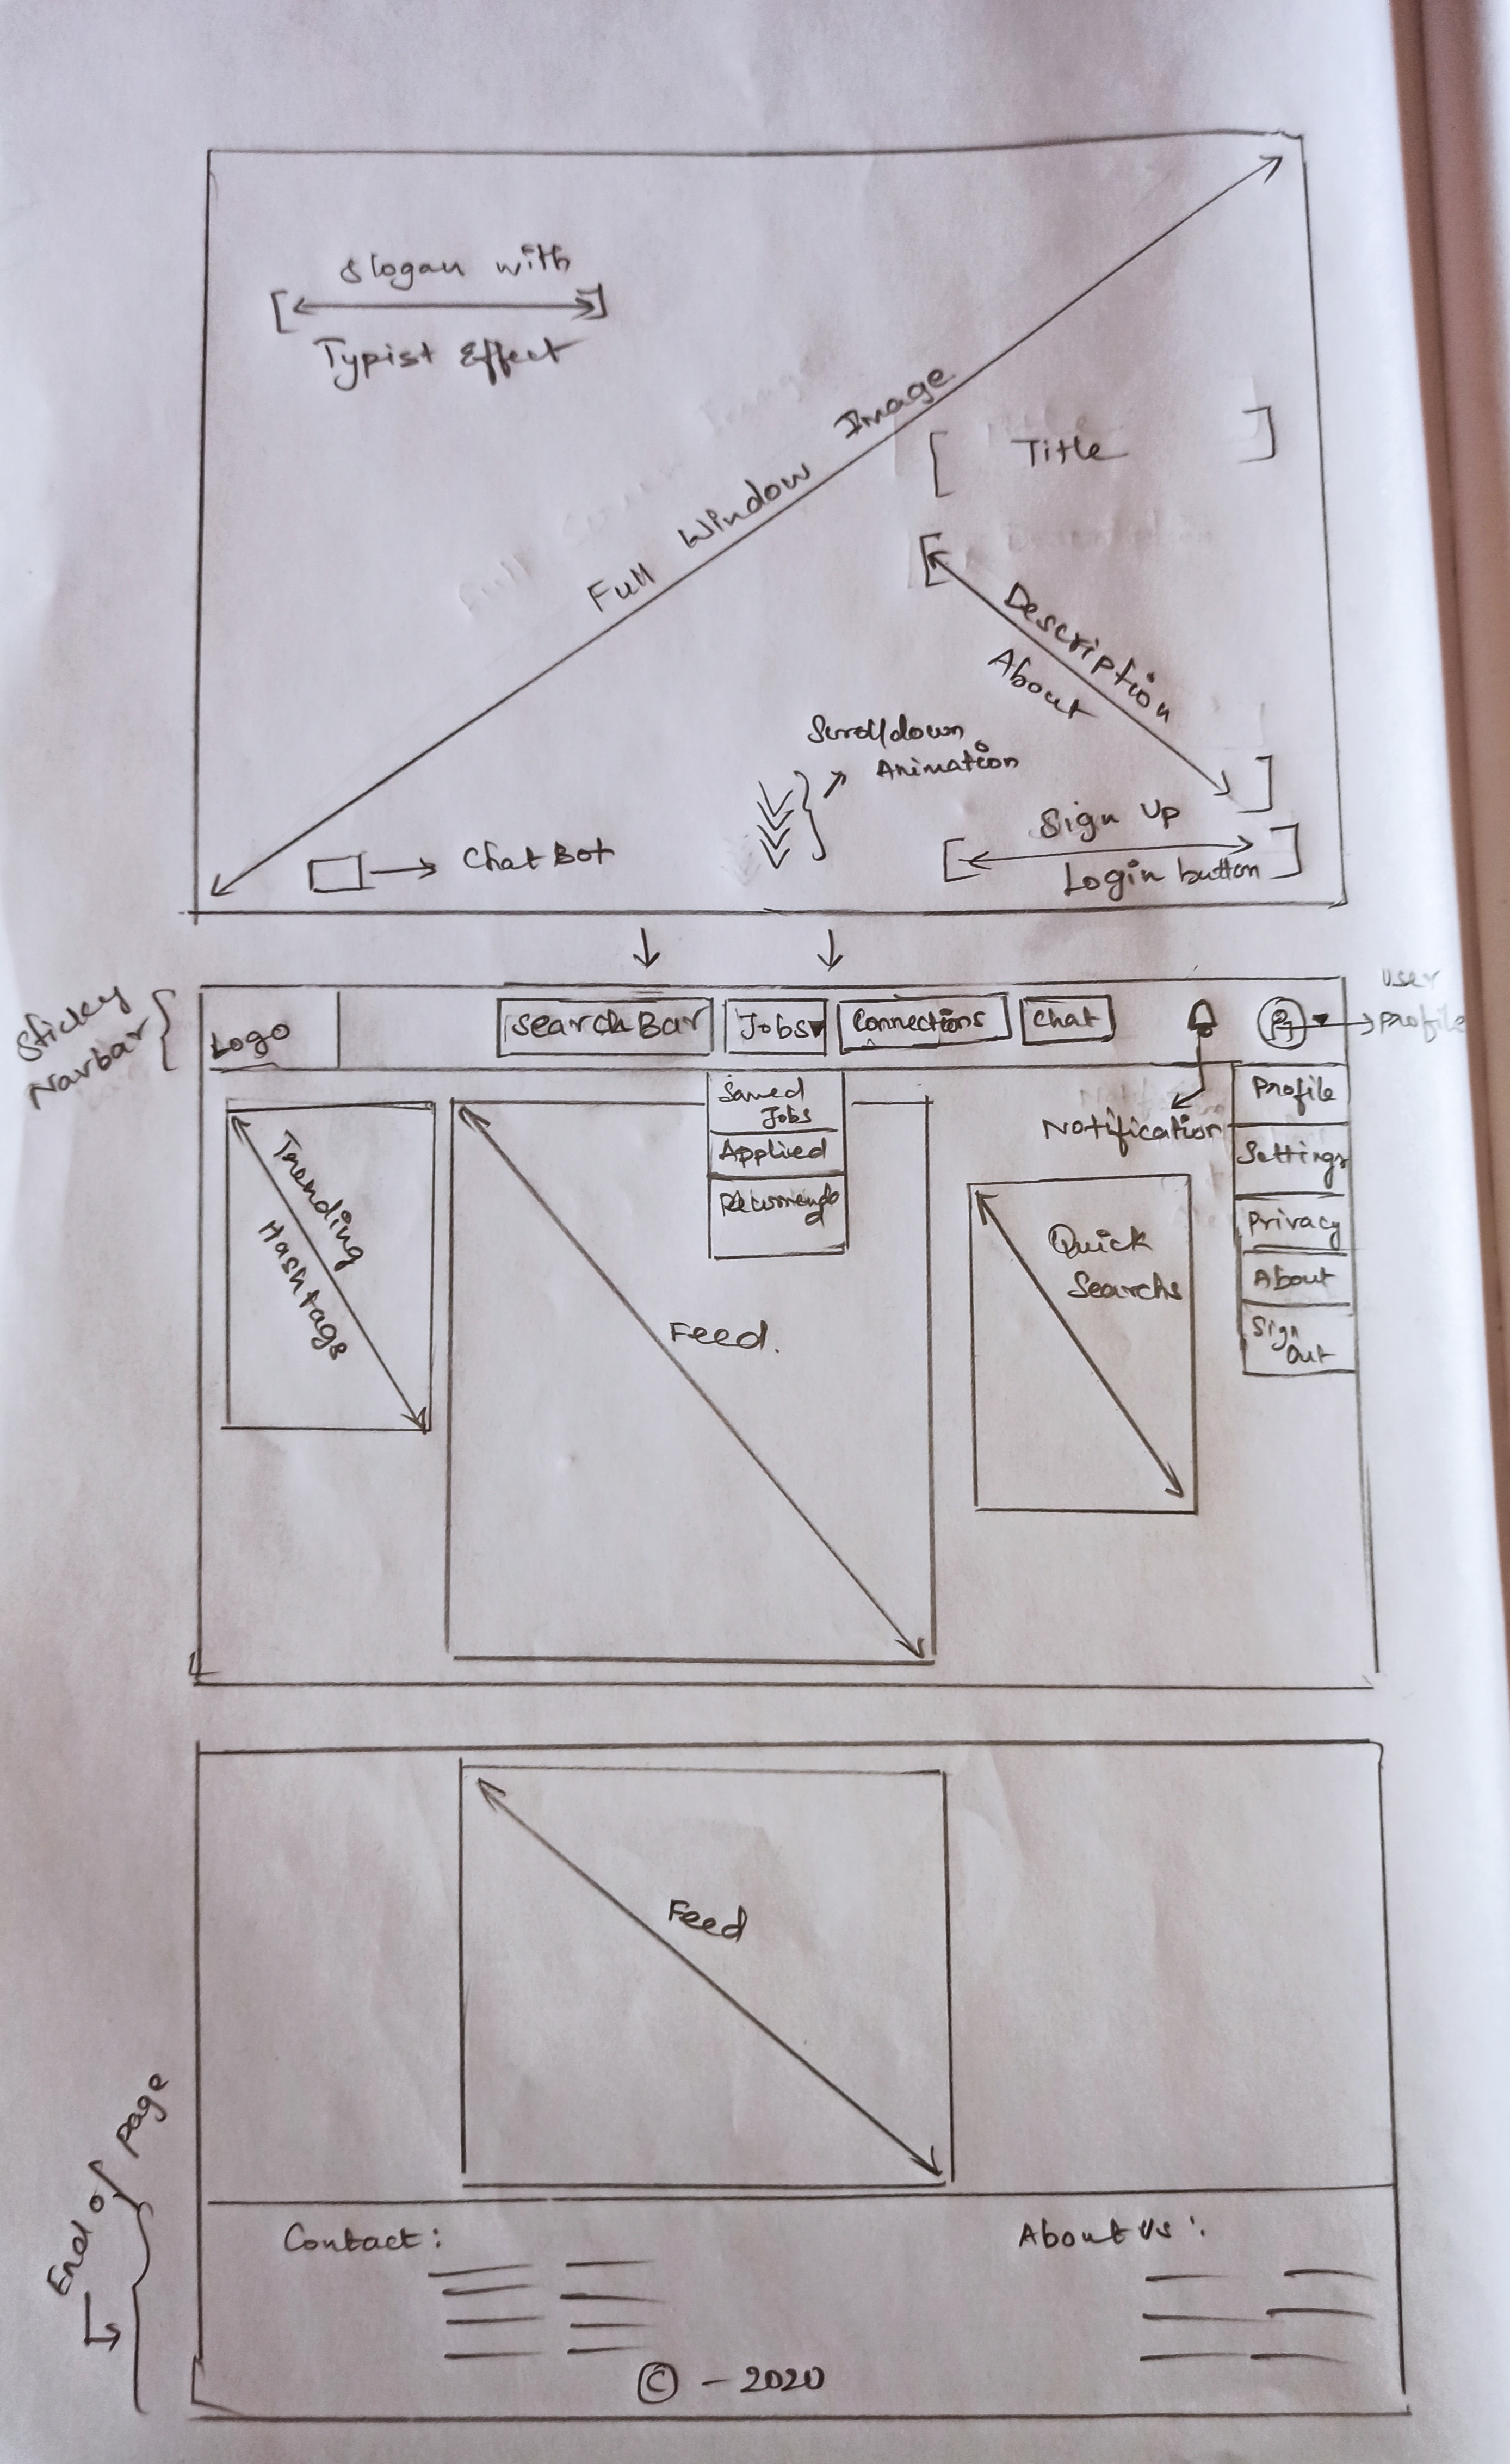 Slogan with
Typist Effect
Full Window Image
Title
Description
About
Scrolldown
Animation
Chat Bot
Sign Up
Login button
Sticky
Navbar
Logo
Search Bar
Jobs
Connections
Chat
user
profile
Notification
Saved
Jobs
Applied
Profile
Settings
Privacy
About
Sign
Out
Trending
Hashtags
Feed.
Quick
Searchs
Feed
End of page
Contact :
About Us :
© - 2020